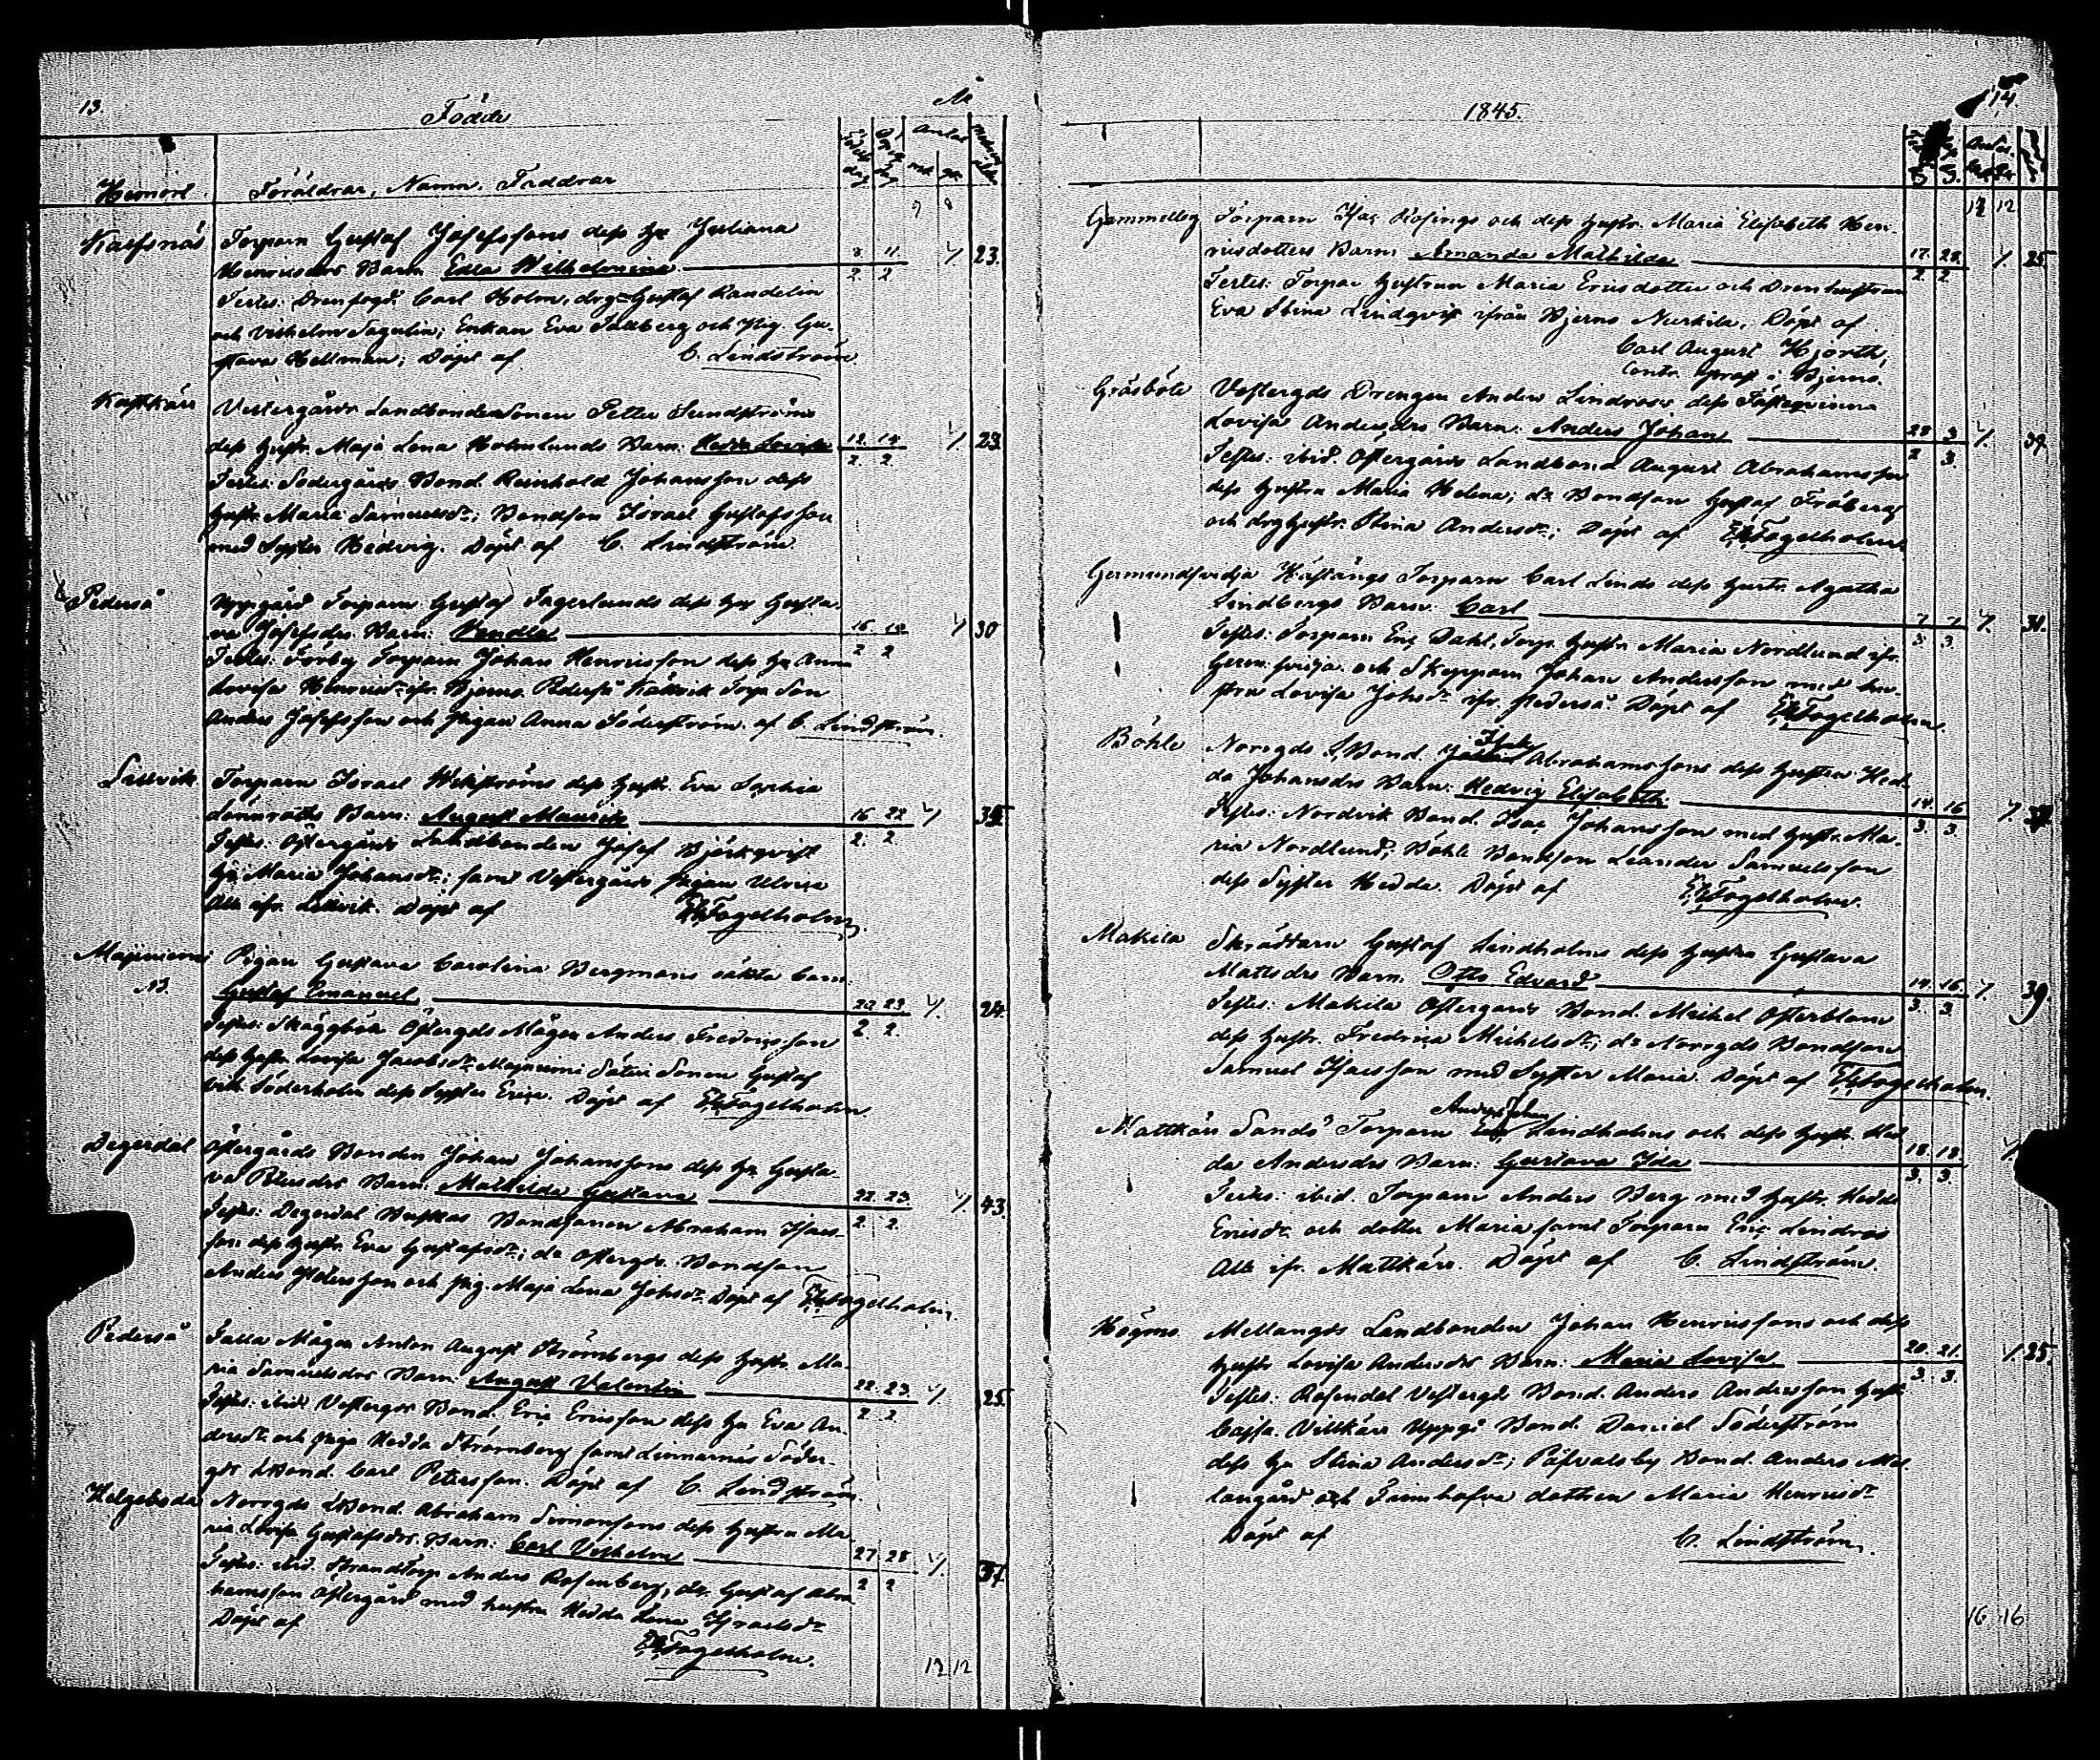 13.
Födde
År
Hemort. Föräldrar, Namn, Faddrar
Födelse dag Döpt dag Antal mk qk Modrens ålder
9 8
Torparn Gustaf Josefssons dess hu Juliana
Henricsdrs Barn Edla Wilhelmina 8/2 11/2 1/. 23.
Testes: Drengfogd. Carl Holm, drg Gustaf Randelin
och Vilhelm Fagulin; Enkan Eva Sallberg och Pig. Gu-
stava Hellman; Döpt af C. Lindström
Kastkärr Vestergårds Landbonde Sonen Petter Sundströms
dess hustr. Maja Lena Holmlunds Barn: Hedda Lovisa 12/2. 14/2. 1/. 23
Testes: Södergårds Bond. Reinhold Johansson dess
hustr. Maria Samuelsdr; Bondson Israel Gustafsson
med Syster Hedvig. Döpt af C. Lindström
Pederså Uppgård Torparn Gustaf Fagerlunds dess hu Gusta-
va Josefsdrs Barn: Vendla 15/2 18/2 1/. 30
Testes: Förby Torparn Johan Henricsson dess hu Anna
Lovisa Henricsdr ifr. Bjerno. Pederså Källvik Torp. Son
Anders Josefsson och Pigan Anna Söderström. af C. Lindström.
Lillvik Torparn Israel Wikströms dess hustr. Eva Sophia
Lönnroths Barn: August Mauritz 16/2. 22/2 1/
Testes: Östergårds Landbonden Josef Björkqvist
hu Maria Johansdr; samt Vestergårds Pigan Ulrica
Alla ifr. Lillvik. Döpt af Fogelholm.
Majniemi Pigan Gustava Carolina Bergmans oäkta barn
Gustaf Emanuel 22/2. 23/2. 1/. 24
Testes: Skäggböle Östergds Mågen Anders Fredricsson
dess hustr. Lovisa Jacobsdr Majniemi Säteri Sonen Gustaf
Söderholm dess Syster Erica. Döpt af Fogelholm.
Degerdal Östergårds Bonden Johan Johanssons dess hu Gusta-
va Petersdrs Barn. Mathilda Gustava 22/2. 23/2. 1/. 43.
Testes: Degerdal Bustkas Bondsonen Abraham Isacs-
son dess hustr. Eva Gustafsdr; do Östergds Bondson
Anders Petersson och Pig. Maja Lena Johsdr Döpt af Fogelholm.
Pederså Jalla Mågen Anton August Strömbergs dess hustr. Ma-
ria Samuelsdrs Barn. August Valentin 22/2. 23/2 1/. 25.
Testes: ibid Vestergds Bond. Eric Ericsson dess hu Eva An-
dersdr och Piga Hedda Strömberg samt Linnarnäs Söder-
gds LBond. Carl Petersson. Döpt af C. Lindström.
Helgeboda Norrgds LBond. Abraham Simonsons dess hustru Ma-
ria Lovisa Gustafsdrs Barn: Carl Vilhelm 27/2 28/2 1/. 37.
Testes: ibid. Strandtorp Anders Rosenberg; do. Gustaf Abra
hamsson Östergård med hustru Hedda Lena Israelsdr
Döpt af
Fogelholm.
12 12
1845.
14.
12 12
Gammelby Torparn Isac Rosings och dess hustr. Maria Elisabeth Hen-
ricsdotters Barn: Amanda Mathilda 17/2. 28/2. 1/. 25
Testes: Torpar hustrun Maria Ericsdotter och Dreng hustrun
Eva Stina Lindqvist ifrån Bjerno Nurkila. Döpt af
Carl August Hjorth,
Contr. prost i Bjerno.
Gräsböle Vestergds Drengen Anders Lindroos dess Fästeqvinna
Lovisa Andersdrs Barn: Anders Johan 28/2 3/3. 1/.
Testes: ibid. Östergårds Landbond August Abrahamsson
dess hustru Maria Helena; do Bondson Gustaf Fröberg
och drg hustr. Stina Andersdr; Döpt af Fogelholm
Germundsvidja Hästängs Torparn Carl Linds dess hustr. Agatha
Lindbergs Barn: Carl 7/3. 7/3. 1/. 31.
Testes: Torparn Eric Dahl, Torp. hustr. Maria Nordlund ifr.
Germ: svidja. och Skepparn Johan Andersson med hu-
stru Lovisa Johsdr ifr. Pederså Döpt af Fogelholm.
Böhle Norrgds LBond. Isak Abrahamssons dess hustru Hed-
da Johansdrs Barn: Hedvig Elisabeth 14/3. 16/3. 1/.
Testes: Nordvik Bond. Isac Johansson med hustr. Ma-
ria Nordlund; Böhle Bondson Leander Samuelsson
dess Syster Hedda. Döpt af Fogelholm.
Makila Skräddarn Gustaf Lindholms dess hustru Gustava
Matsdrs Barn. Otto Edvard 14/3. 16/3. 1/. 39.
Testes: Makila Östergards Bond. Michel Österblom
dess hustr. Fredrica Michelsdr; do Norrgds Bondson
Samuel Isacsson med Syster Maria. Döpt af Fogelholm.
Anders Johan
Mattkärr Sandö Torparn Lindholms och dess hustr. Hed-
da Andersdrs Barn: Gustava Ida 18/3. 18/3.
Testes: ibid. Torparn Anders Berg med hustr. Hedda
Ericsdr och dotter Maria samt Torparn Eric Lindroos
Alla ifr. Mattkärr. Döpt af C. Lindström.
Högmo Mellangds Landbonden Johan Henricssons och dess
hustr Lovisa Andersdrs Barn: Maria Lovisa 20/3. 21/3. 1/. 25.
Testes: Rosendal Vestergds Bond. Anders Andersson hustr
Cajsa. Villkärr Uppgds Bond. Daniel Söderström
dess hu Stina Andersdr; Påfvalsby Bond. Anders Mel-
langård och dottren Maria Henricsdr
Döpt af C. Lindström.
16 16